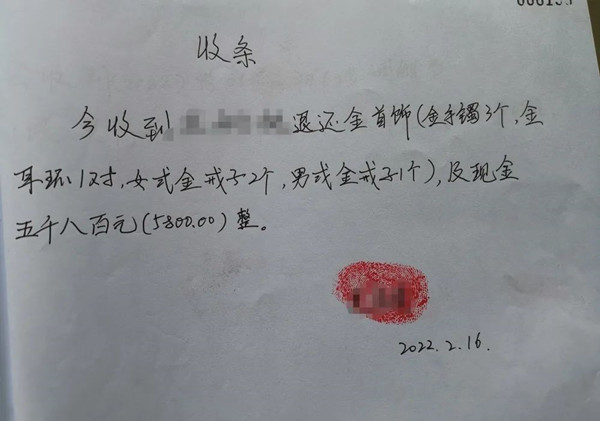 收条
今收到 退还金首饰(金手镯3个,金
耳环1对,女式金戒子2个,男式金戒子1个),及现金
五千八百元(5800.00)整。
2022.2.16.